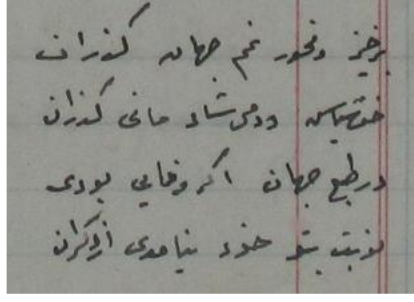 برخیز و مخور غم جهان گذران
خوش باش و دمی شاد مانی گذران
در طبع جهان اگر وفایی بودی
نوبت بتو خود نیامدی از دگران